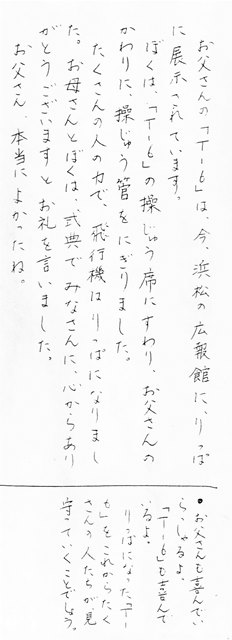 お父さんの「T―6」は、今、浜松の広報館に、りっぱ
に展示されています。
ぼくは、「T―6」の操じゅう席にすわり、お父さんの
かわりに、操じゅう管をにぎりました。
たくさんの人の力で、飛行機はりっぱになりまし
た。お母さんとぼくは、式典でみなさんに、心からあり
がとうございますとお礼を言いました。
お父さん、本当によかったね。
●お父さんも喜んでい
らっしゃるよ。
「T―6」も喜んで
いるよ。
りっぱになった「T―
6」をこれからたく
さんの人たちが、見
守っていくことでしょう。